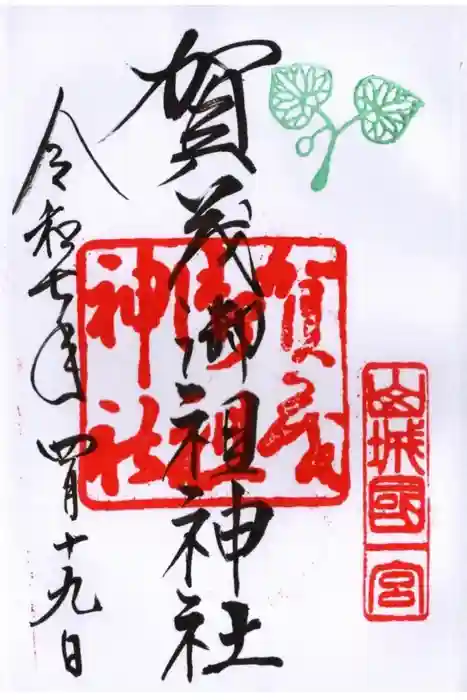 山城國一宮
賀茂御祖神社
賀茂
御祖
神社
令和七年四月十九日